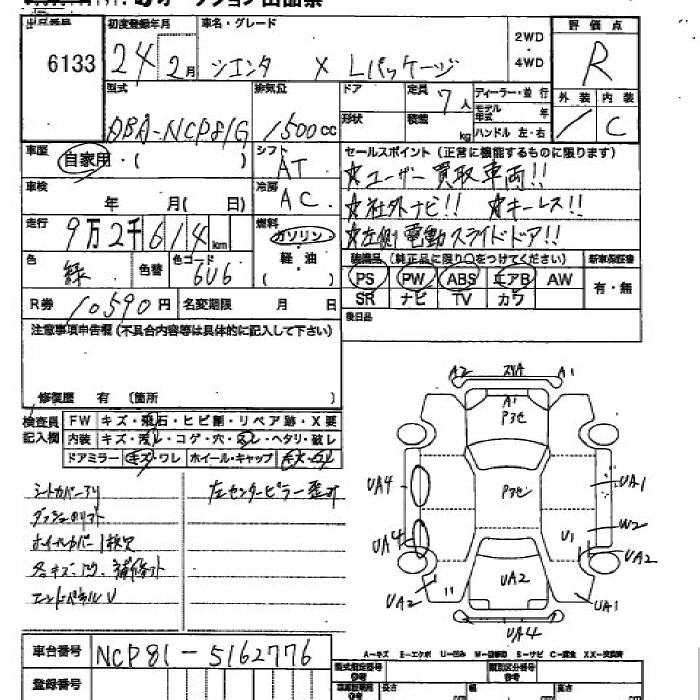 出品番号 初度登録年月 車名・グレード 2WD・4WD 評価点
6133 24年2月 シエンタ X Lパッケージ R
型式 排気量 ドア 定員 ディーラー・並行 外装 内装
DBA-NCP81G 1500cc 7人 モデル年式 年 / C
形状 積載 kg ハンドル 左・右
車歴 自家用・( ) シフト AT セールスポイント(正常に機能するものに限ります)
☆ユーザー買取車両!!
車検 年 月( 日) 冷房 AC
☆社外ナビ!! ☆キーレス!!
走行 9万2千614km 燃料 ガソリン・軽油( )
☆左側電動スライドドア!!
色 緑 色替 色コード 6U6
装備品(純正品に限り○をつけてください) 新車保証書
PS PW ABS エアB AW 有・無
SR ナビ TV カワ
R券 10590円 名変期限 月 日
後日品
注意事項申告欄(不具合内容等は具体的に記入して下さい)
修復歴 有 (箇所 )
検査員記入欄
FW キズ・飛石・ヒビ割・リペア跡・X要
内装 キズ・汚レ・コゲ・穴・スレ・ヘタリ・破レ
ドアミラー キズ・ワレ ホイール・キャップ キズ・ワレ
シートカバーアリ 左センターピラー歪ミ
ホイールカバー1枚欠
エンドパネルU
A2 A1
A1
P3セ
UA4 P3セ UA1
W2
UA4 U1 UA2
UA2 UA2 UA1
UA4
A-キズ E-エクボ U-凹み S-サビ C-腐食 XX-交換済
車台番号 NCP81-5162776
登録番号
型式指定番号 類別区分番号
長さ 幅 高さ